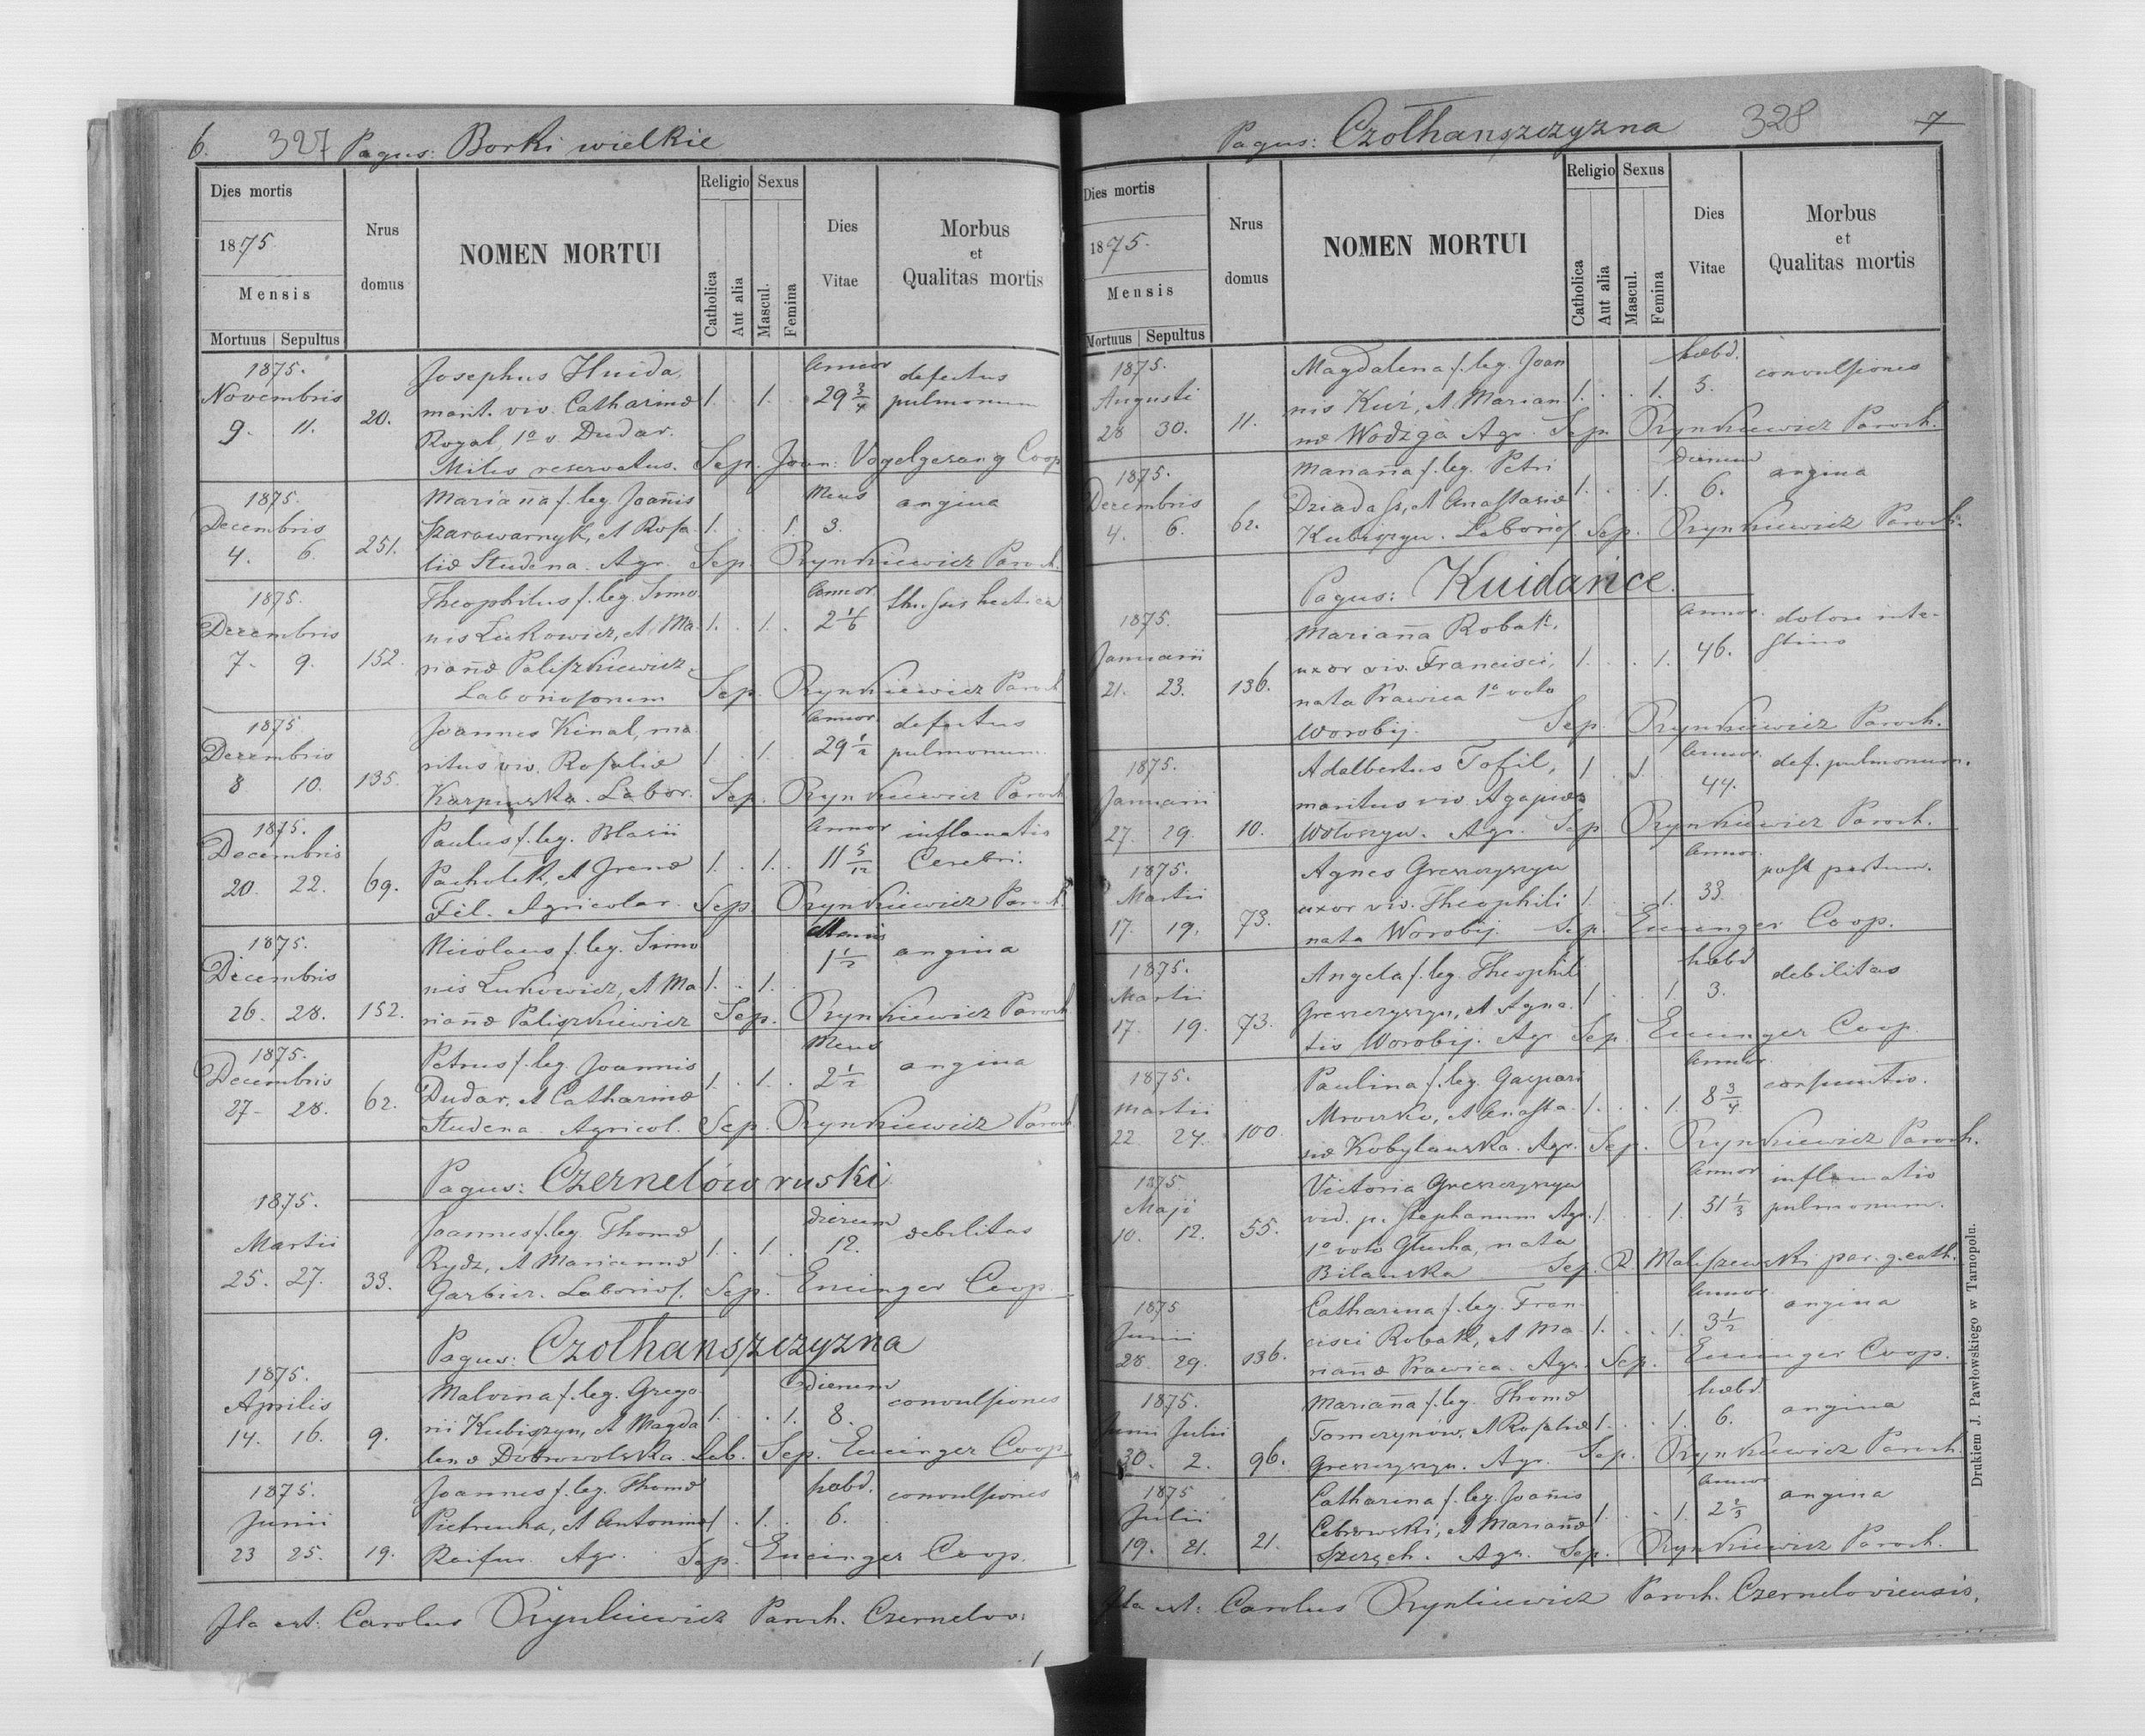 6. 327 Pagus: Borki wielkie
Dies mortis
1875.
Mensis
Mortuus Sepultus
Nrus domus
NOMEN MORTUI
Religio Sexus
Catholica
Aut alia
Mascul.
Femina
Dies Vitae
Morbus et Qualitas mortis
1875. Josephus Huida, Annor defectus
Novembris marit. viv. Catharinæ 1. 1. 29 3/4 pulmonum
9. 11. 20. Royal, 1º v. Dudar.
Miles reservatus. Sep. Joan: Vogelgesang Coop
1875. Marianna f. leg. Joannis Mens angina
Decembris Szarawarnyk, et Rosa 1. 1. 3.
4. 6. 251. liæ Studena. Agr. Sep. Rynkiewicz Paroch.
1875. Theophilus f. leg. Simo Annor
Decembris nis Lukowicz, et Ma 1. 1. 2 1/6
7. 9. 152. riannæ Paliszkiewicz
Laboriosorum Sep. Rynkiewicz Paroch
1875 Joannes Kinal, ma Annor defectus
Decembris ritus viv. Rosaliæ 1. 1. 29 1/2 pulmonum
8 10. 135. Karpinska. Labor. Sep. Rynkiewicz Paroch
1875. Paulus f. leg. Blasii Annor inflamatio
Decembris Pacholek, et Irenæ 1. 1. 11 5/12 Cerebri.
20. 22. 69. Fil. Agricolar. Sep. Rynkiewicz Paroch.
1875. Nicolaus f. leg. Simo angina
Decembris nis Lukowicz, et Ma 1. 1. 1 1/2
26. 28. 152. riannæ Paliszkiewicz Sep. Rynkiewicz Paroch
1875. Petrus f. leg. Joannis Mens angina
Decembris Dudar, et Catharinæ 1. 1. 2 1/2
27 28. 62. Studena. Agricol. Sep. Rynkiewicz Paroch
Pagus: Czernelów ruski
1875. Joannes f. leg. Thomæ dierum debilitas
Martii Rydz, et Mariannæ 1. 1. 12.
25. 27. 33. Garbicz. Laborios. Sep. Encinger Coop.
Pagus: Czołhanszczyzna
1875. Malvina f. leg. Grego dierum convulsiones
Aprilis rii Kubiszyn, et Magda 1. 1. 8.
14. 16. 9. lenæ Dobrowolska. Lab. Sep. Encinger Coop.
1875. Joannes f. leg. Thomæ hebd. convulsiones
Junii Pietrucha, et Antoninæ 1. 1. 6.
23 25. 19. Reifur. Agr. Sep. Encinger Coop.
Ita est: Carolus Rynkiewicz Paroch. Czernelov:
Pagus: Czołhanszczyzna 328 7
Dies mortis
1875.
Mensis
Mortuus Sepultus
Nrus domus
NOMEN MORTUI
Religio Sexus
Catholica
Aut alia
Mascul.
Femina
Dies Vitae
Morbus et Qualitas mortis
1875. Magdalena f. leg. Joan hebd. convulsiones
Augusti nis Kuź, et Marian 1. 1. 5.
28 30. 11. næ Wodzga Agr. Sep. Rynkiewicz Paroch.
1875. Marianna f. leg. Petri Dierum angina
Decembris Dziadass, et Anastasiæ 1. 1. 6.
4. 6. 62. Kubiszyn. Laborios. Sep. Rynkiewicz Paroch.
Pagus: Kuidańce
1875. Marianna Robak, Annor. dolore inte-
Januarii uxor viv. Francisci, 1. 1. 46. stino
21. 23. 136. nata Prawica 1º voto
Worobij. Sep. Rynkiewicz Paroch.
1875. Adalbertus Tofil, 1 1 Annor. def. pulmonum.
Januarii maritus viv. Agapiæ 44.
27. 29. 10. Wołoszyn. Agr. Sep Rynkiewicz Paroch.
1875. Agnes Greszczyszyn Annor. post partum.
Martii uxor viv. Theophili 1. 1. 33.
17. 19. 73. nata Worobij. Sep. Encinger Coop.
1875. Angela f. leg. Theophili hebd debilitas
Martii Greszczyszyn, et Agne 1. 1. 3.
17. 19. 73. tis Worobij. Agr Sep. Encinger Coop.
1875. Paulina f. leg. Gaspari Annor. consumtio.
Martii Mroczko, et Anasta 1. 1. 8 3/4
22 24. 100. siæ Kobylanska. Agr. Sep. Rynkiewicz Paroch.
1875 Victoria Greszczyszyn Annor inflamatio
Maji vid. p. Stephanum Agr. 1. 1. 51 1/3 pulmonum.
10. 12. 55. 1º voto Głucha, nata
Bilanska Sep. Maliszewski par. g. cath.
1875 Catharina f. leg. Fran- Annor. angina
Junii cisci Robak, et Ma 1. 1. 3 1/2
28. 29. 136. riannæ Prawica. Agr. Sep. Encinger Coop.
1875. Marianna f. leg. Thomæ hebd. angina
Junii Julii Tomczynów, et Rosaliæ 1. 1. 6.
30. 2. 96. Greszczyszyn. Agr. Sep. Rynkiewicz Paroch.
1875 Catharina f. leg. Joannis Annor angina
Julii Cebrowski, et Mariannæ 1. 1. 2 2/3
19. 21. 21. Szeręch. Agr. Sep. Rynkiewicz Paroch.
Ita est: Carolus Rynkiewicz Paroch. Czerneloviensis.
Drukiem J. Pawłowskiego w Tarnopolu.